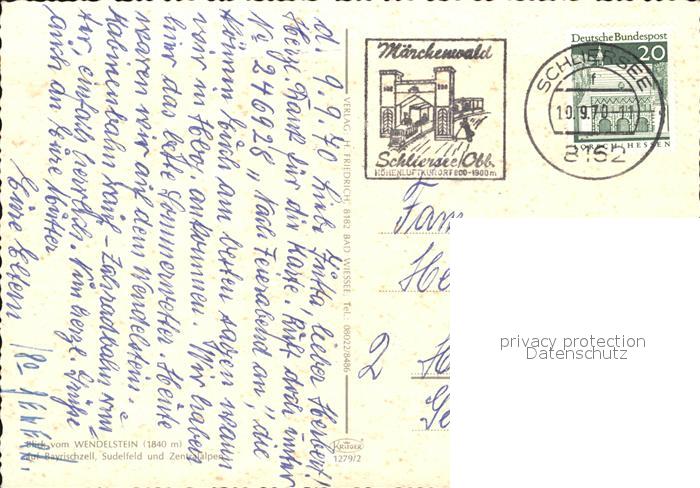 d. 9.9.70 Liebe Jutta, lieber Herbert!
Herzl. Dank für die Karte. Ruft doch unter
Nr. 240928 „Karl Feierabend an", die
können Euch am besten sagen wann
wir in Hbg ankommen. Wir haben
hier das beste Sommerwetter. Heute
waren wir auf dem Wendelstein.
hinauf - Zahnradbahn
einfach herrlich. Nun herzl. Grüße
auch an Eure Mutter
Eure Eltern
VERLAG H. FRIEDRICH, 8182 BAD WIESSEE TEL. 08022/8486
Märchenwald
Schliersee/Obb.
HÖHENLUFTKURORT 800-1900m
SCHLIERSEE
f
10.9.70-11
8162
Deutsche Bundespost
20
LORSCH/HESSEN
Fam
He
2 H
privacy protection
Datenschutz
Blick vom WENDELSTEIN (1840 m)
auf Bayrischzell, Sudelfeld und Zentralalpen
KRÜGER
1279/2